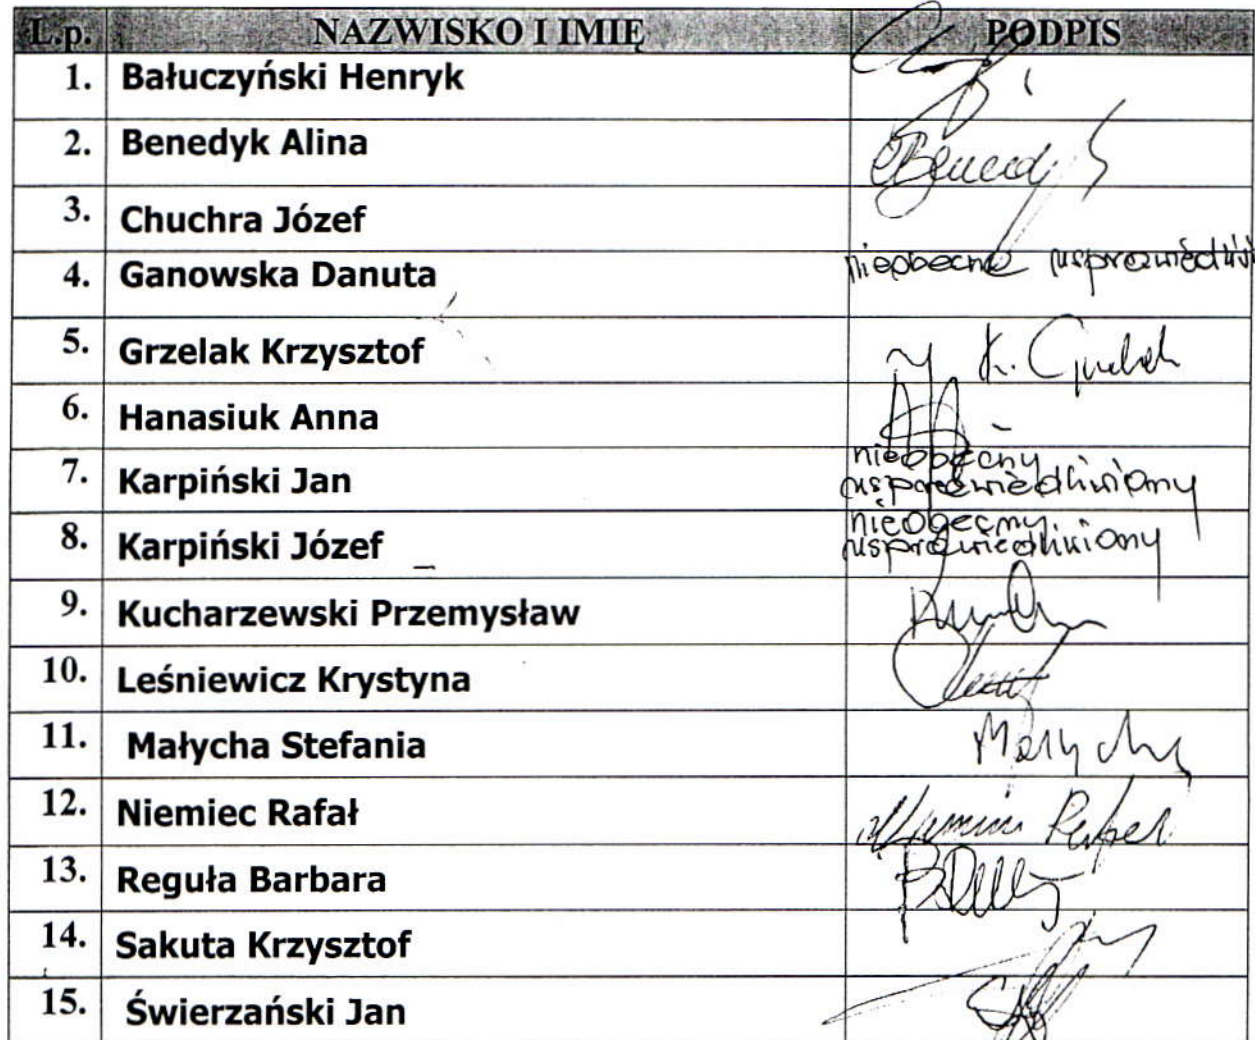 L.p. NAZWISKO I IMIĘ PODPIS
1. Bałuczyński Henryk
2. Benedyk Alina
3. Chuchra Józef
4. Ganowska Danuta nieobecna
5. Grzelak Krzysztof K. Grzelak
6. Hanasiuk Anna
7. Karpiński Jan nieobecny
usprawiedliwiony
8. Karpiński Józef nieobecny
usprawiedliwiony
9. Kucharzewski Przemysław
10. Leśniewicz Krystyna
11. Małycha Stefania Małycha
12. Niemiec Rafał
13. Reguła Barbara
14. Sakuta Krzysztof
15. Świerzański Jan